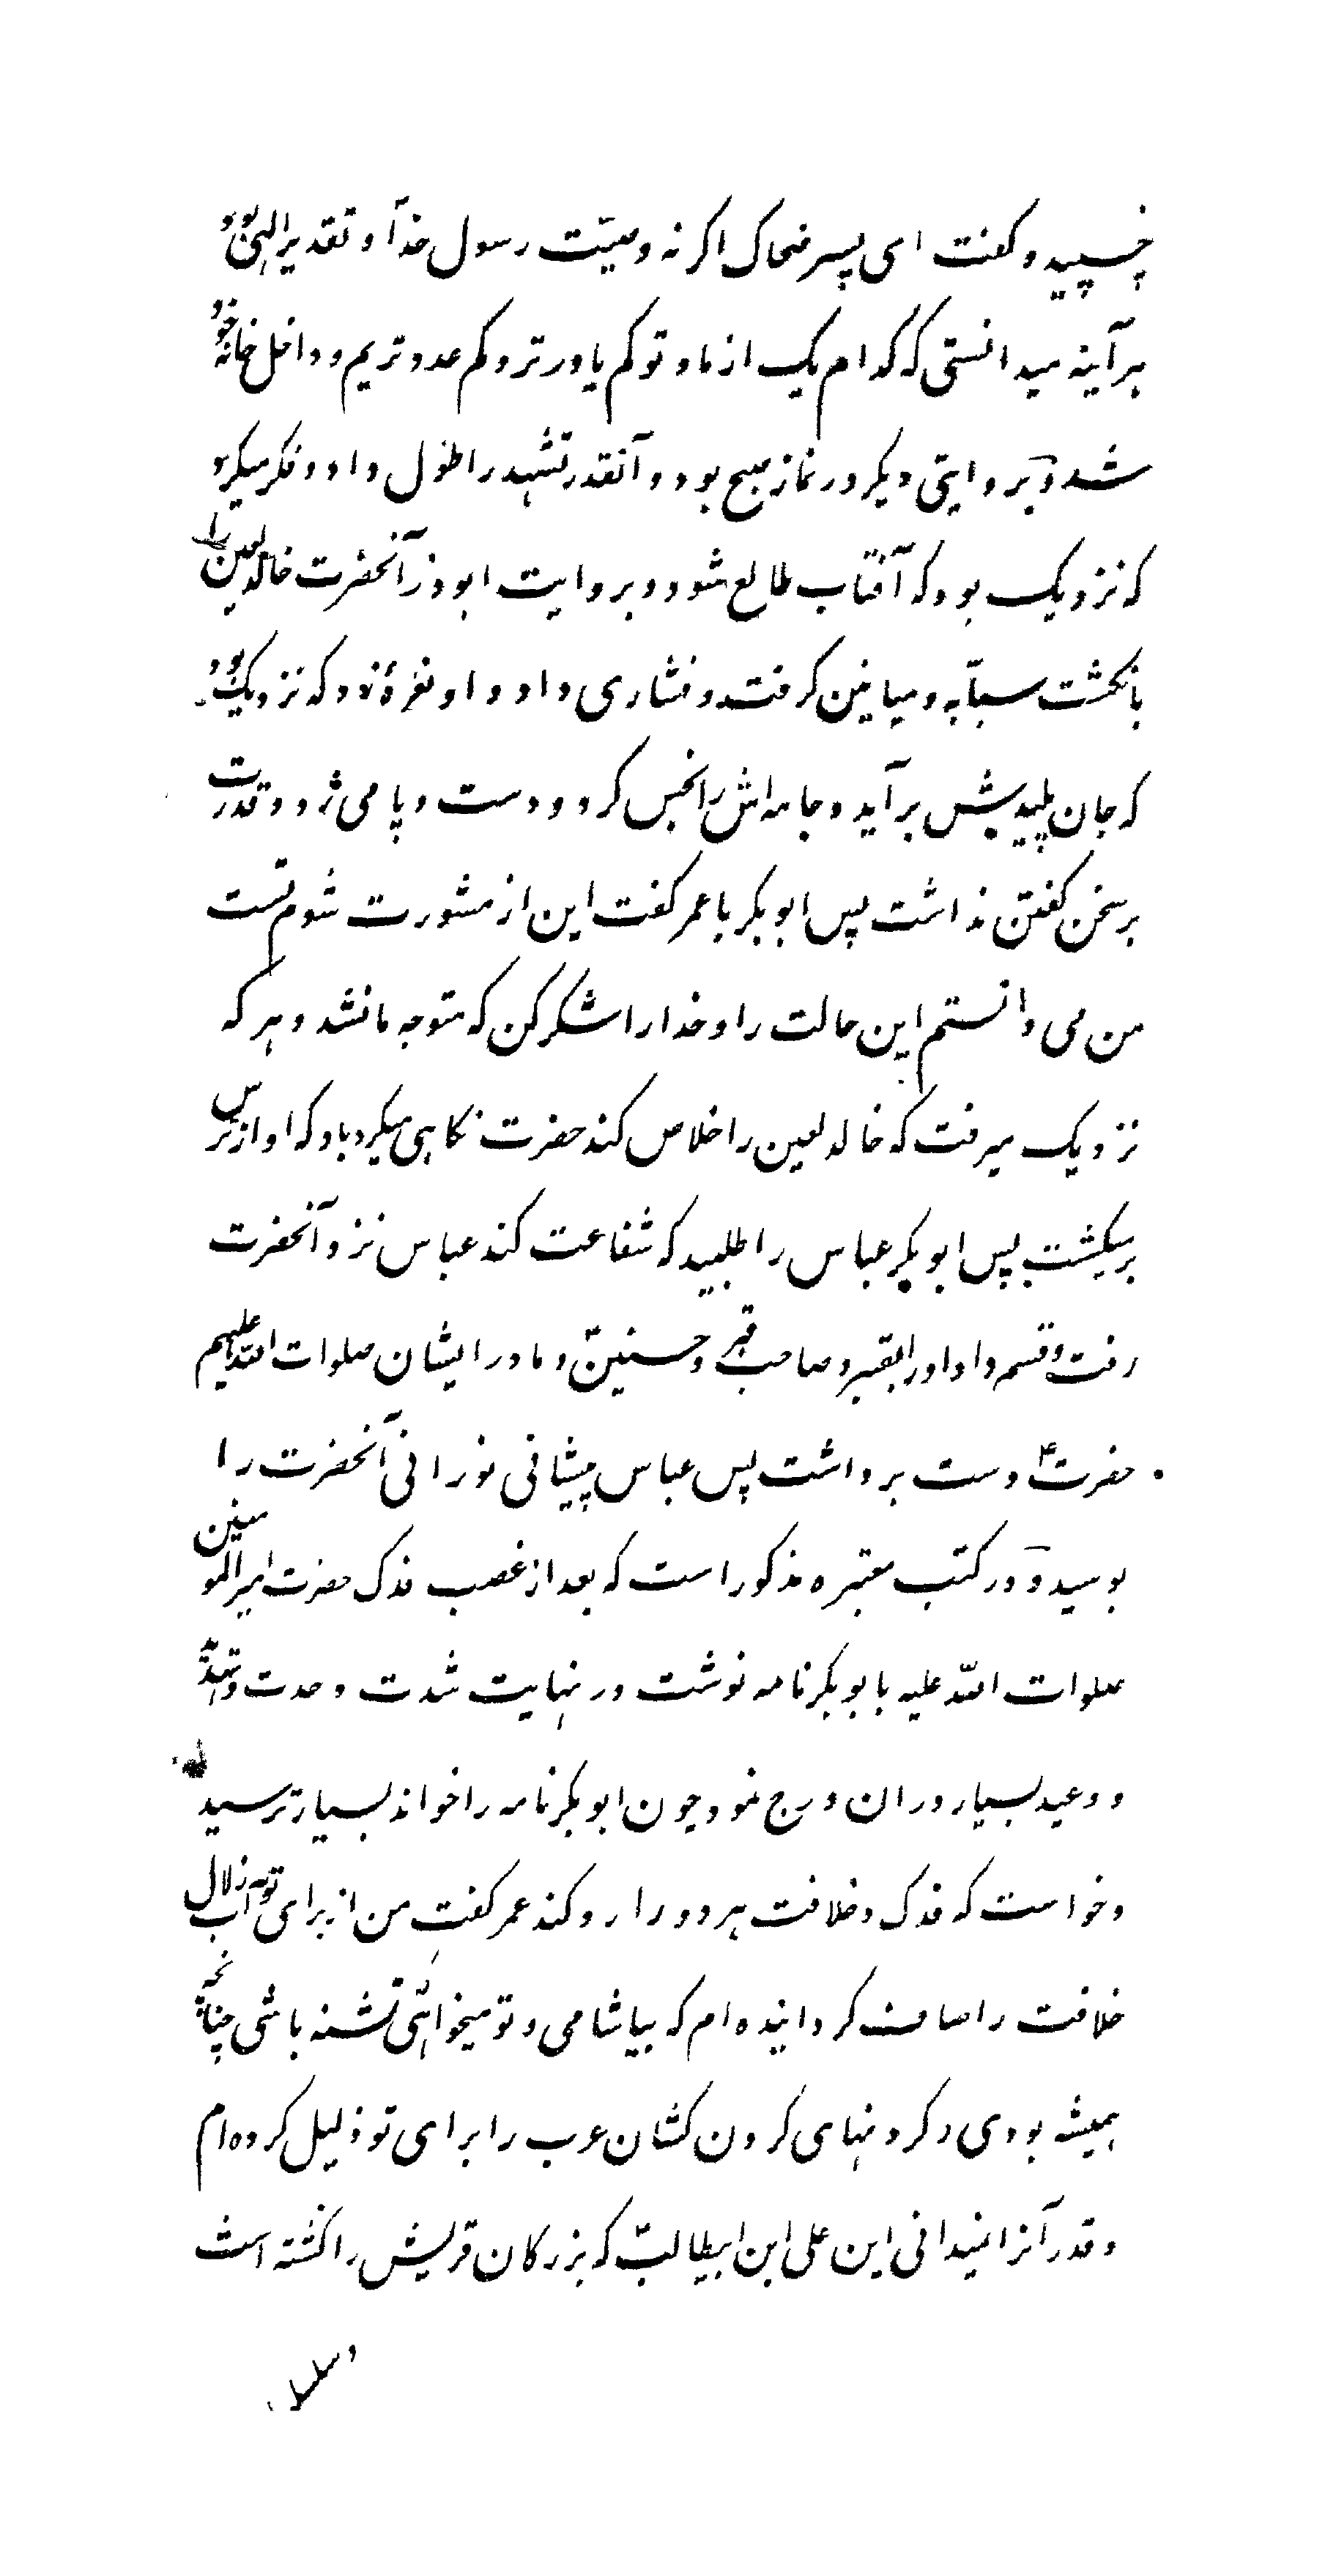 چسپید و کفت ای پسر ضحاک اکر نه وصیّت رسول خدآ و تقدیر الهی بود
هرآینه میدانستی که کدام یک از ما و تو کم یاور تر و کم عدد تریم و داخل خانه خود
شد و بروایتی دیکر در نماز صبح بود و آنقدر تشهد را طول داد و فکر میکرد
که نزدیک بود که آفتاب طالع شود و بروایت ابوذر آنحضرت خالد لعین را
بانکشت سبّابه و میانین کرفت و فشاری داد و او نعرهٔ زد که نزدیک بود
که جان پلیدش برآید و جامه اش را نجس کرد و دست و پا می زد و قدرت
بر سخن کفتن نداشت پس ابوبکر با عمر کفت این از مشورت شوم تست
من می دانستم این حالت را و خدا را شکر کن که متوجه ما نشد و هر که
نزدیک میرفت که خالد لعین را خلاص کند حضرت نکاهی میکرد باو که او از ترس
برمیکشت پس ابوبکر عباس را طلبید که شفاعت کند عباس نزد آنحضرت
رفت و قسم داد او را بقبر و صاحب قبر و حسنینؑ و مادر ایشان صلوات الله علیهم
حضرتؑ دست برداشت پس عباس پیشانی نورانی آنحضرت را
بوسید و در کتب معتبره مذکور است که بعد از غصب فدک حضرت امیرالمومنین
صلوات الله علیه بابوبکر نامه نوشت در نهایت شدت و حدت و تهدید
و وعید بسیار در ان درج نمود چون ابوبکر نامه را خواند بسیار ترسید
و خواست که فدک و خلافت هر دو را رد کند عمر کفت من از برای تو آب زلال
خلافت را صاف کردانیده ام که بیاشامی و تو میخواهی تشنه باشی چنانچه
همیشه بودی و کردنهای کردن کشان عرب را برای تو ذلیل کرده ام
و قدر آنرا نمیدانی این علی ابن ابیطالبؑ که بزرکان قریش را کشته است